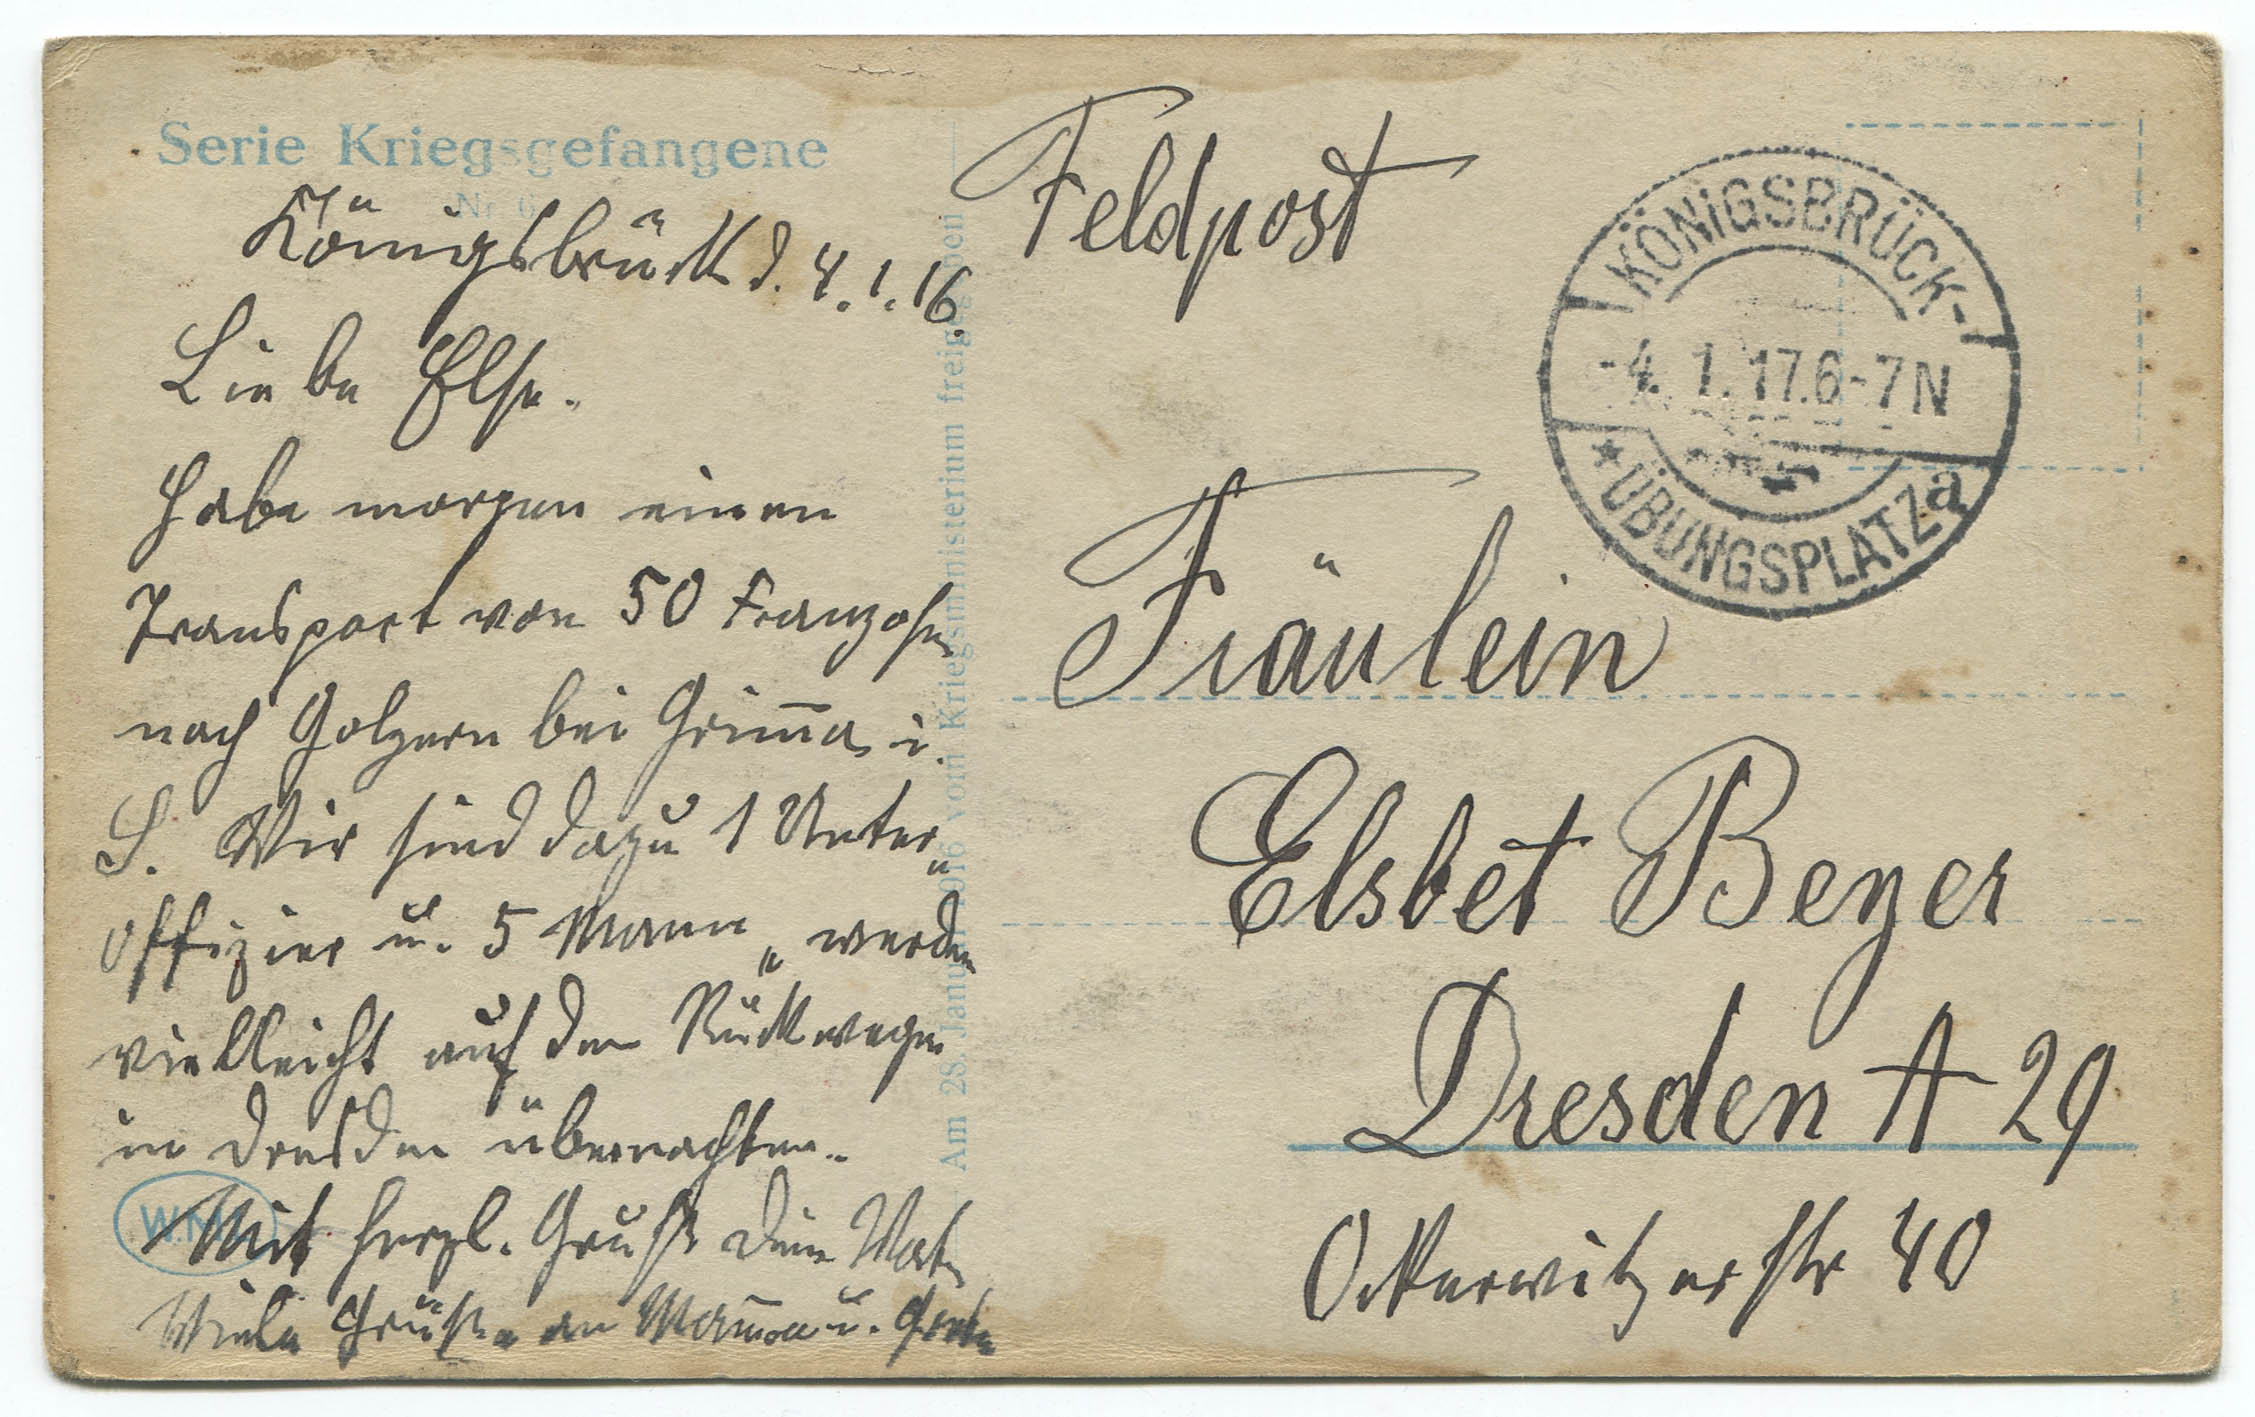 Serie Kriegsgefangene
Nr. 6
Königsbrück d. 4.1.16.
Liebe Else.
Habe morgen einen
Transport von 50 Franzosen
nach Golzern bei Grim̅a i.
S. Wir sind dazu 1 Unter„
offizier u. 5 Mann „ werden
vielleicht auf dem Rückwege
in Dresden übernachten.
Mit herzl. Gruß Dein
Viele Grüße an Mam̅a u. Grete
W.N.
Am 28. Januar 1916 vom Kriegsministerium freigegeben
Feldpost
KÖNIGSBRÜCK-
-4. 1. 17. 6-7N
* ÜBUNGSPLATZ a
Fräulein
Elsbet Beyer
Dresden A 29
Ockerwitzer Str 40